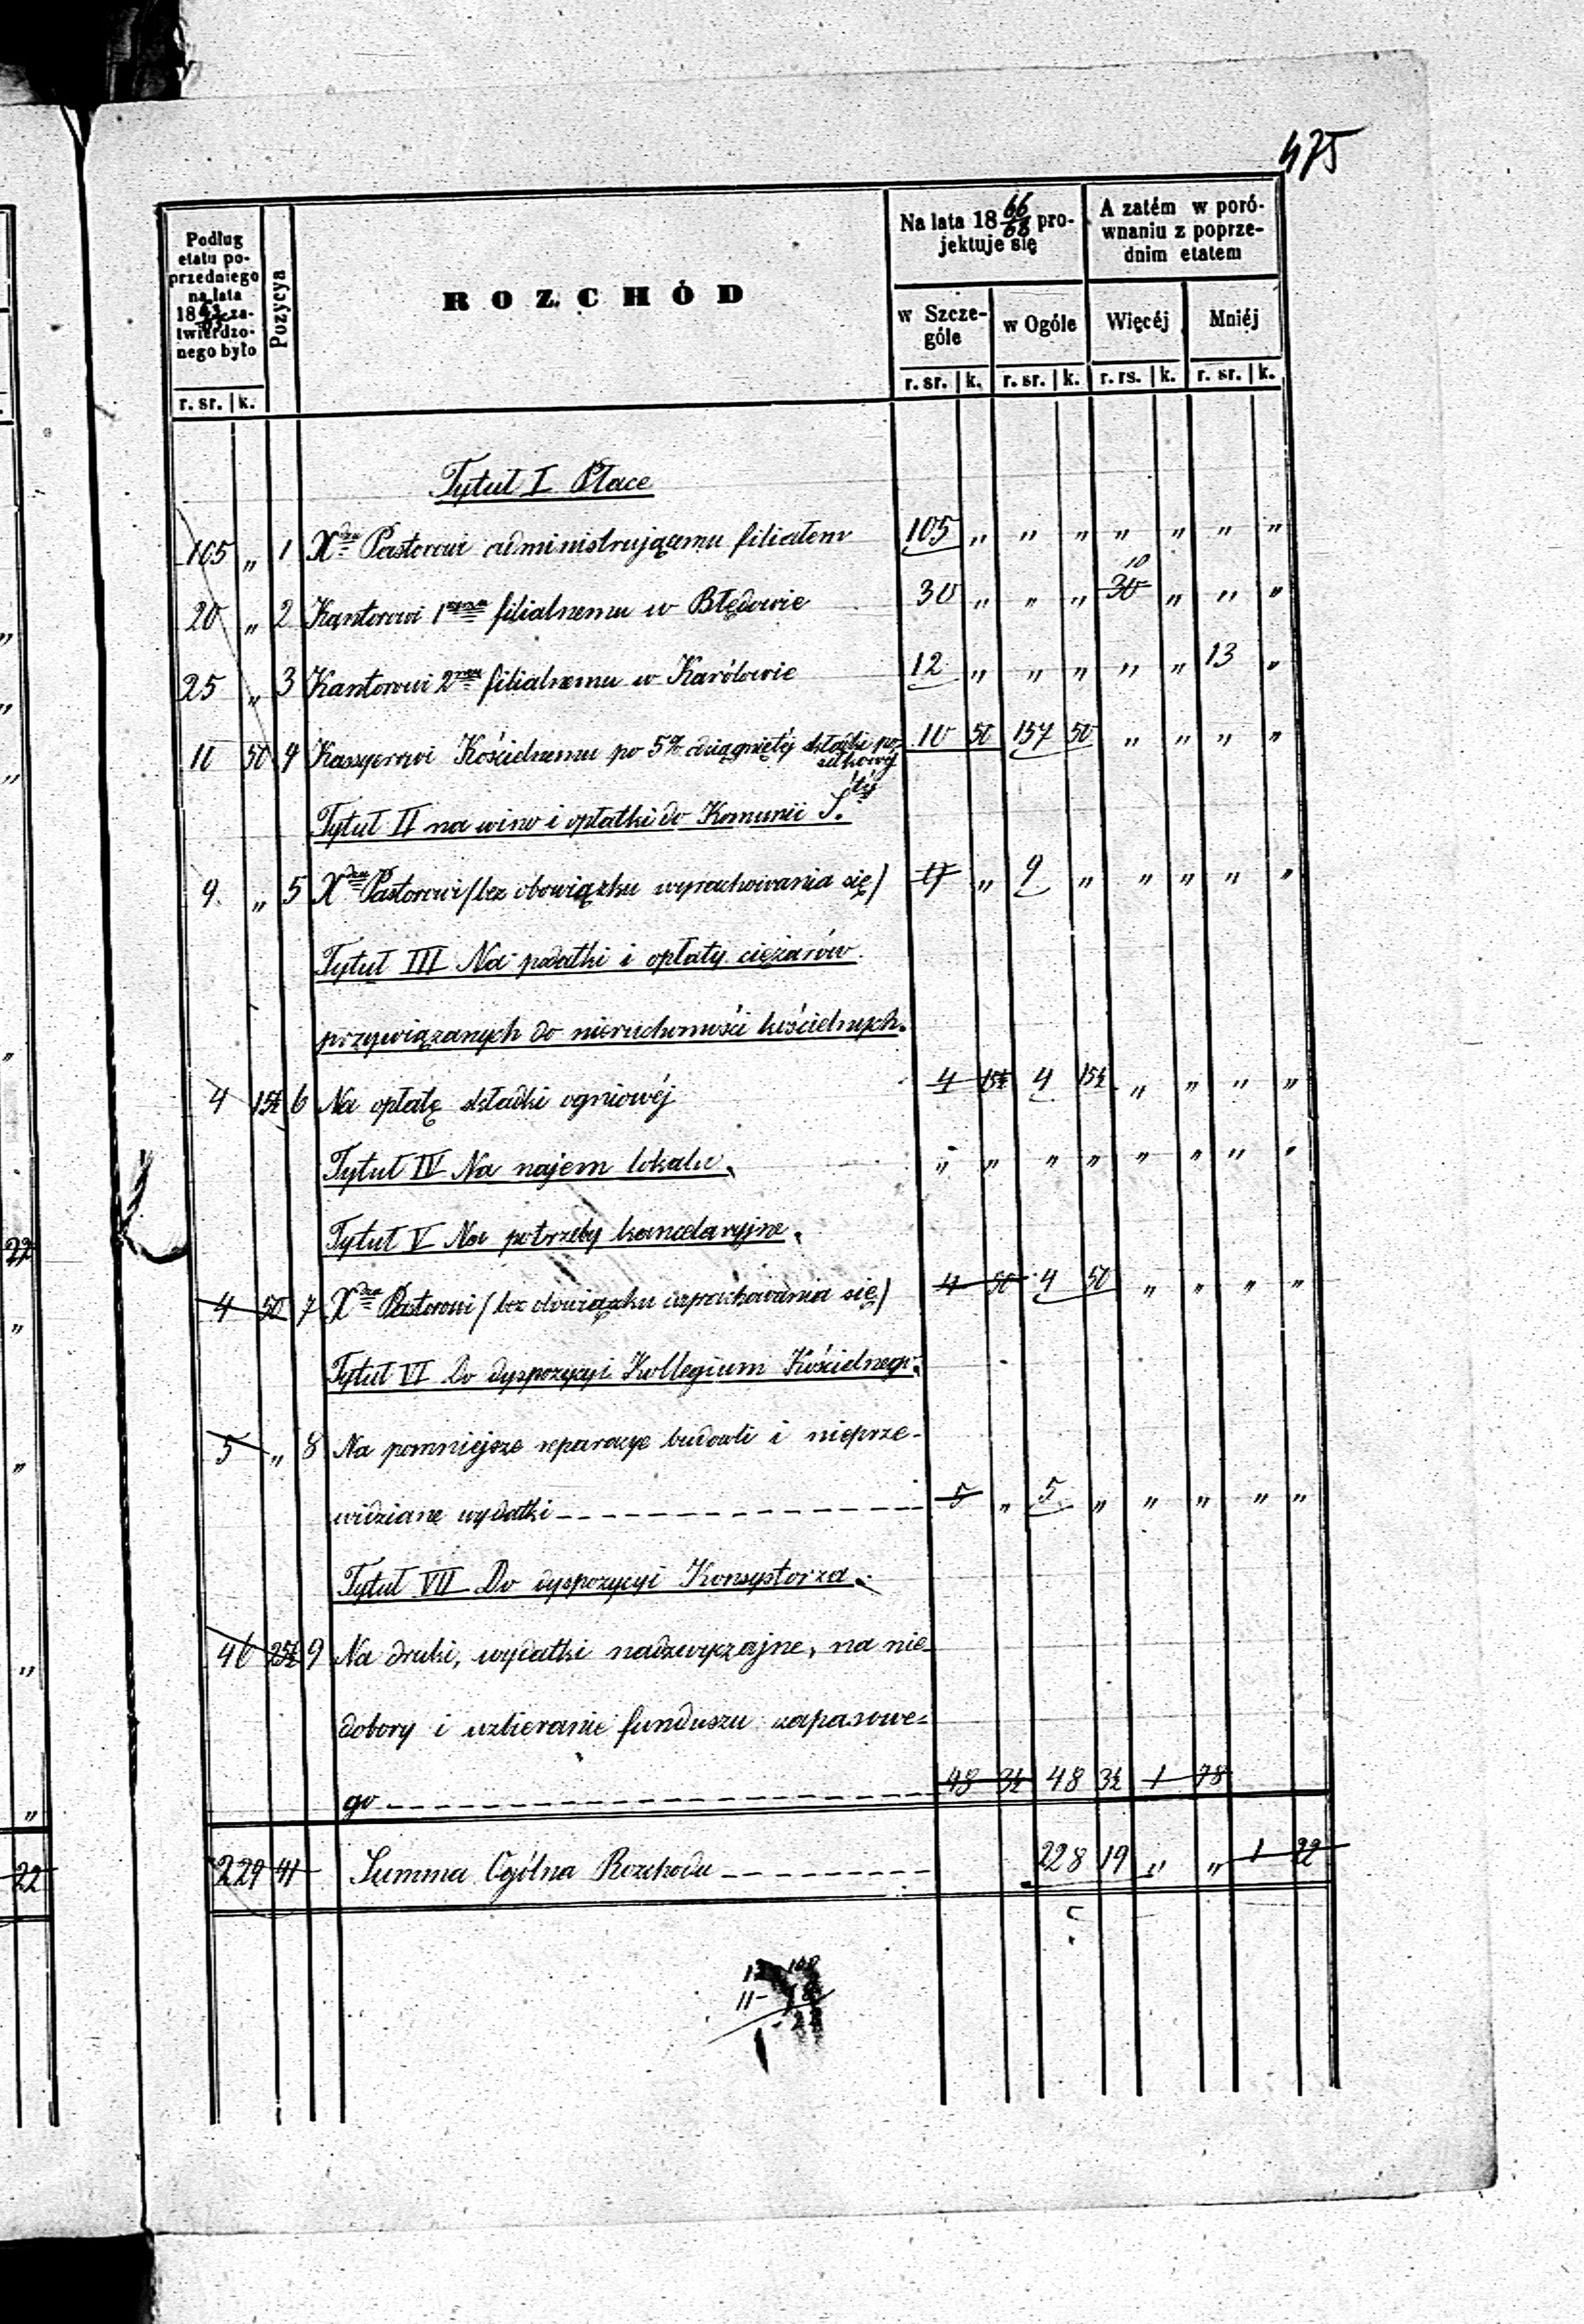 475
Podług etatu poprzedniego na lata 18 63/65 zatwierdzonego było
Pozycya
ROZCHÓD
Na lata 18 66/68 projektuje się
A zatém w porównaniu z poprzednim etatem
w Szczególe
w Ogóle
Więcéj
Mniéj
r. sr. | k.
r. sr. | k.
r. sr. | k.
r. rs. | k.
r. sr. | k.
Tytuł I Płace
105 „ 1 Xdzu Pastorowi administrującemu filiałem 105 „ „ „ „ „ „ „
20 „ 2 Kantorowi 1 filialnemu w Błędowie 30 „ „ „ 30 10 „ „ „
25 „ 3 Kantorowi 2 filialnemu w Karólowie 12 „ „ „ „ „ 13 „
10 50 4 Kassyerowi Kościelnemu po 5% ściągniętéj składki 10 50 157 50 „ „ „ „
Tytuł II na wino i opłatki do Komunii S.téj
9 „ 5 Xdzu Pastorowi (bez obowiązku wyrachowania się) 9 „ 9 „ „ „ „ „
Tytuł III Na podatki i opłaty ciężarów
przywiązanych do nieruchomości kościelnych.
4 15½ 6 Na opłatę składki ogniowéj 4 15½ 4 15½ „ „ „ „
Tytuł IV Na najem lokalu. „ „ „ „ „ „ „ „
Tytuł V Na potrzeby kancelaryjne.
4 50 7 Xdzu Pastorowi (bez obowiązku wyrachowania się) 4 50 4 50 „ „ „ „
Tytuł VI Do dyspozycyi Kollegium Kościelnego.
5 „ 8 Na pomniejsze reparacye budowli i nieprze-
widziane wydatki 5 „ 5 „ „ „ „ „
Tytuł VII Do dyspozycyi Konsystorza.
46 25½ 9 Na druki, wydatki nadzwyczajne, na nie-
dobory i uzbieranie funduszu zapasowe-
go 48 3½ 48 3½ 1 78
229 41 Summa Ogólna Rozchodu 228 19 „ „ 1 22